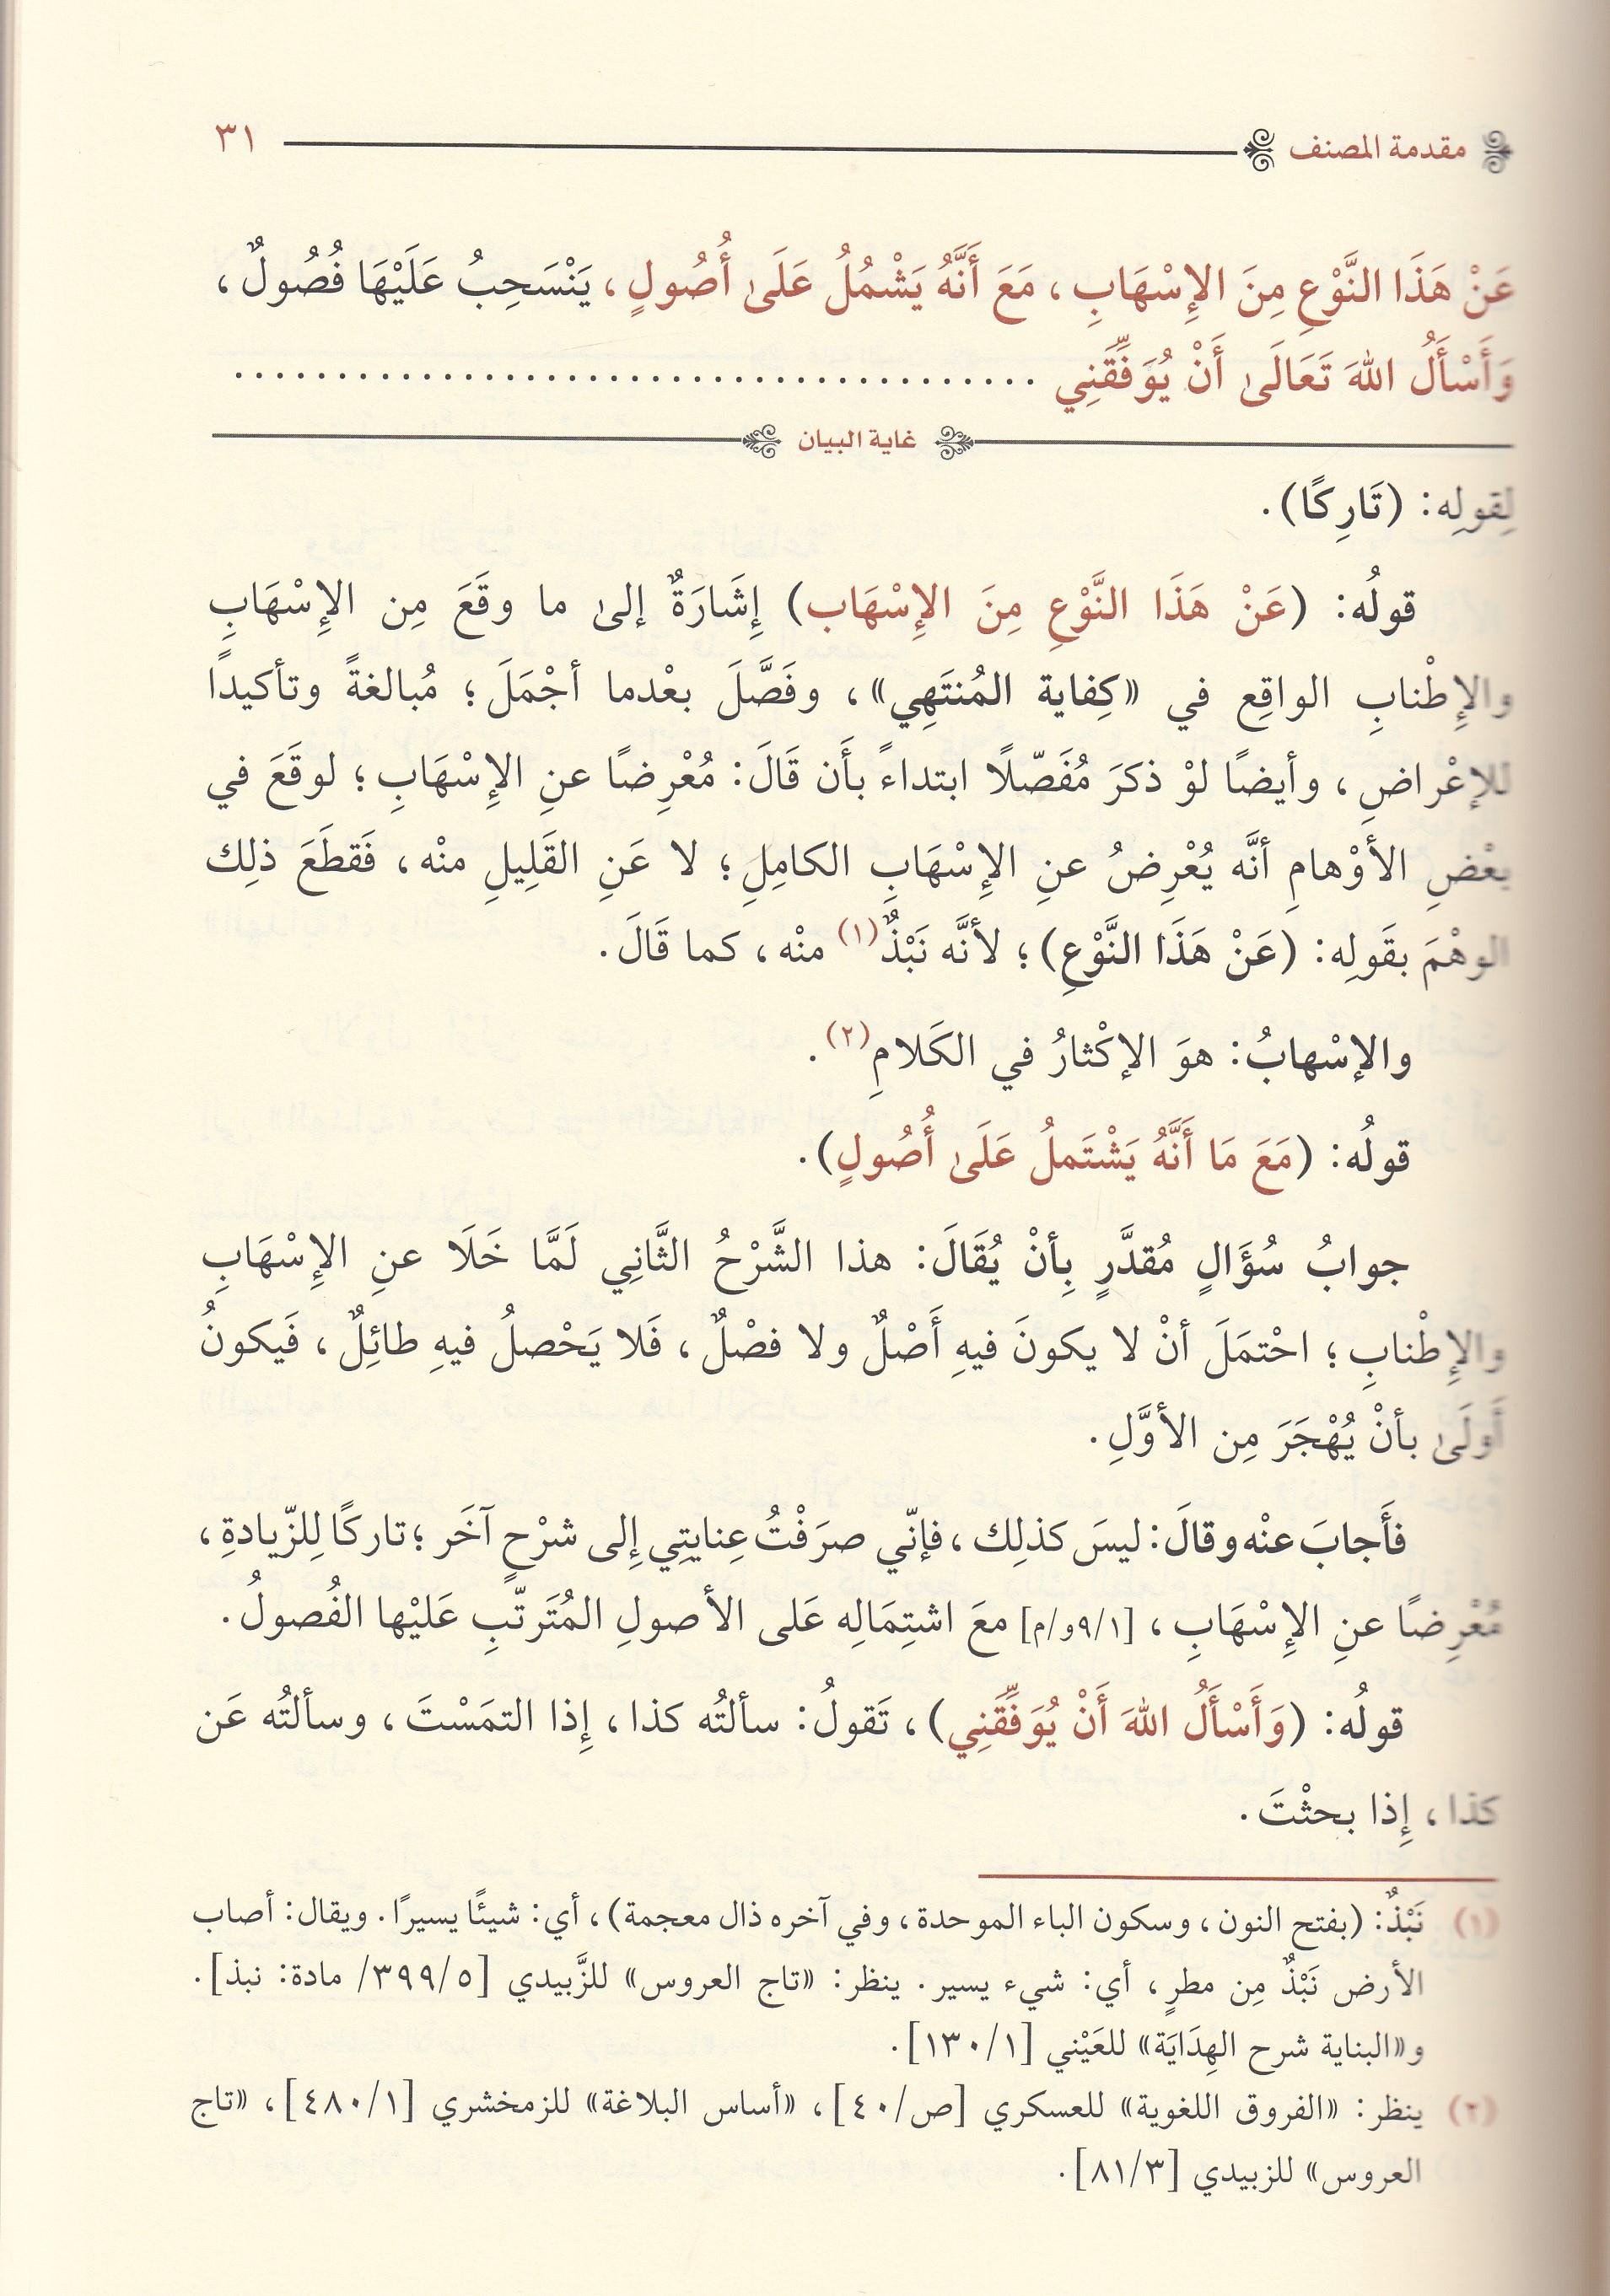 مقدمة المصنف ٣١
عَنْ هَذَا النَّوْعِ مِنَ الإِسْهَابِ، مَعَ أَنَّهُ يَشْمُلُ عَلَىٰ أُصُولٍ، يَنْسَحِبُ عَلَيْهَا فُصُولٌ،
وَأَسْأَلُ اللهَ تَعَالَىٰ أَنْ يُوَفِّقَنِي ........................................
غاية البيان
لِقولِه: (تَارِكًا).
قولُه: (عَنْ هَذَا النَّوْعِ مِنَ الإِسْهَاب) إِشَارَةٌ إلىٰ ما وقَعَ مِن الإِسْهَابِ
والإِطْنابِ الواقِع في «كِفاية المُنتَهِي»، وفَصَّلَ بعْدما أجْمَلَ؛ مُبالغةً وتأكيدًا
للإعْراضِ، وأيضًا لوْ ذكرَ مُفَصّلًا ابتداءً بأَن قَالَ: مُعْرِضًا عنِ الإِسْهَابِ؛ لوقَعَ في
بعْضِ الأوْهامِ أنَّه يُعْرِضُ عنِ الإِسْهَابِ الكامِلِ؛ لا عَنِ القَلِيلِ منْه، فَقطَعَ ذلِك
الوهْمَ بقَولِه: (عَنْ هَذَا النَّوْعِ)؛ لأنَّه نَبْذٌ(١) منْه، كما قَالَ.
والإسْهابُ: هوَ الإكْثارُ في الكَلامِ(٢).
قولُه: (مَعَ مَا أَنَّهُ يَشْتَملُ عَلَىٰ أُصُولٍ).
جوابُ سُؤَالٍ مُقدَّرٍ بِأنْ يُقَالَ: هذا الشَّرْحُ الثَّانِي لَمَّا خَلَا عنِ الإِسْهَابِ
والإِطْنابِ؛ احْتمَلَ أنْ لا يكونَ فيهِ أَصْلٌ ولا فصْلٌ، فَلا يَحْصلُ فيهِ طائِلٌ، فَيكونُ
أَولَىٰ بأنْ يُهْجَرَ مِن الأوَّلِ.
فأَجابَ عنْه وقالَ: ليسَ كذلِك، فإنّي صرَفْتُ عِنايتِي إِلى شرْحٍ آخَر؛ تاركًا لِلزّيادةِ،
مُعْرِضًا عنِ الإِسْهَابِ، [٩/١و/م] معَ اشتِمَالِه عَلى الأصولِ المُتَرتّبِ عَليْها الفُصولُ.
قولُه: (وَأَسْأَلُ اللهَ أَنْ يُوَفِّقَنِي)، تَقولُ: سألتُه كذا، إِذا التمَسْتَ، وسألتُه عَن
كذا، إِذا بحثْتَ.
(١) نَبْذٌ: (بفتح النون، وسكون الباء الموحدة، وفي آخره ذال معجمة)، أي: شيئًا يسيرًا. ويقال: أصاب
الأرض نَبْذٌ مِن مطرٍ، أي: شيء يسير. ينظر: «تاج العروس» للزَّبيدي [٣٩٩/٥/ مادة: نبذ].
و«البناية شرح الهِدَايَة» للعَيْني [١٣٠/١].
(٢) ينظر: «الفروق اللغوية» للعسكري [ص/٤٠]، «أساس البلاغة» للزمخشري [٤٨٠/١]، «تاج
العروس» للزبيدي [٨١/٣].